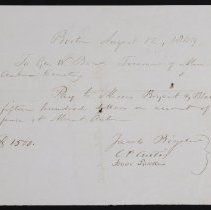 Boston August 12, 1844
To Geo. W. Bond, Treasurer of Mount
Auburn Cemetery
Pay to Messrs Bryant &
fifteen hundred dollars on account of
fence at Mount Auburn
$ 1500.
Jacob Bigelow
C. P. Curtis